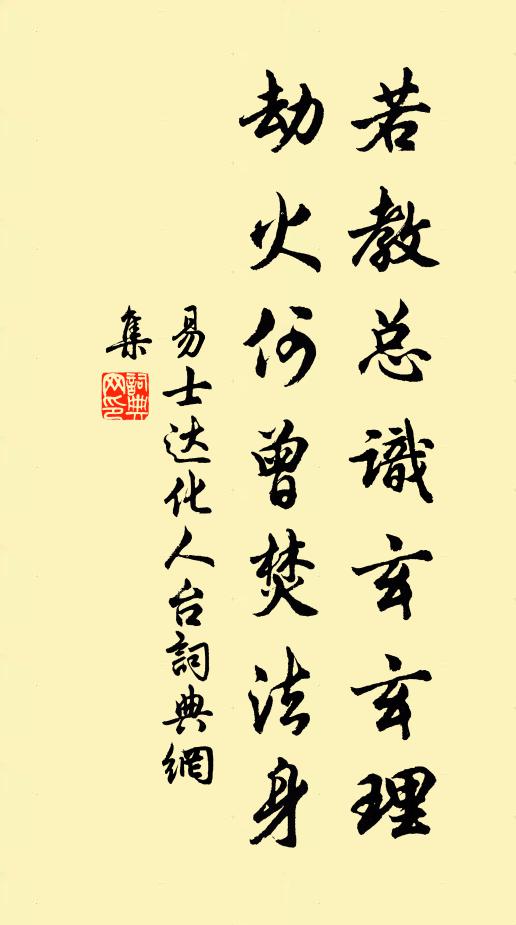 若教总識玄玄理
劫火何曾焚法身
易士达化人台詞典網
集
詞典
网印